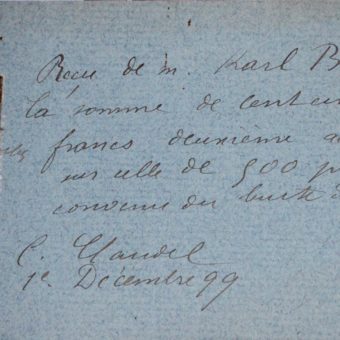 Reçu de M. Karl B
la somme de cent cin
francs deuxième a
sur celle de 500 p
convenue du buste d
C. Claudel
1e Décembre 99